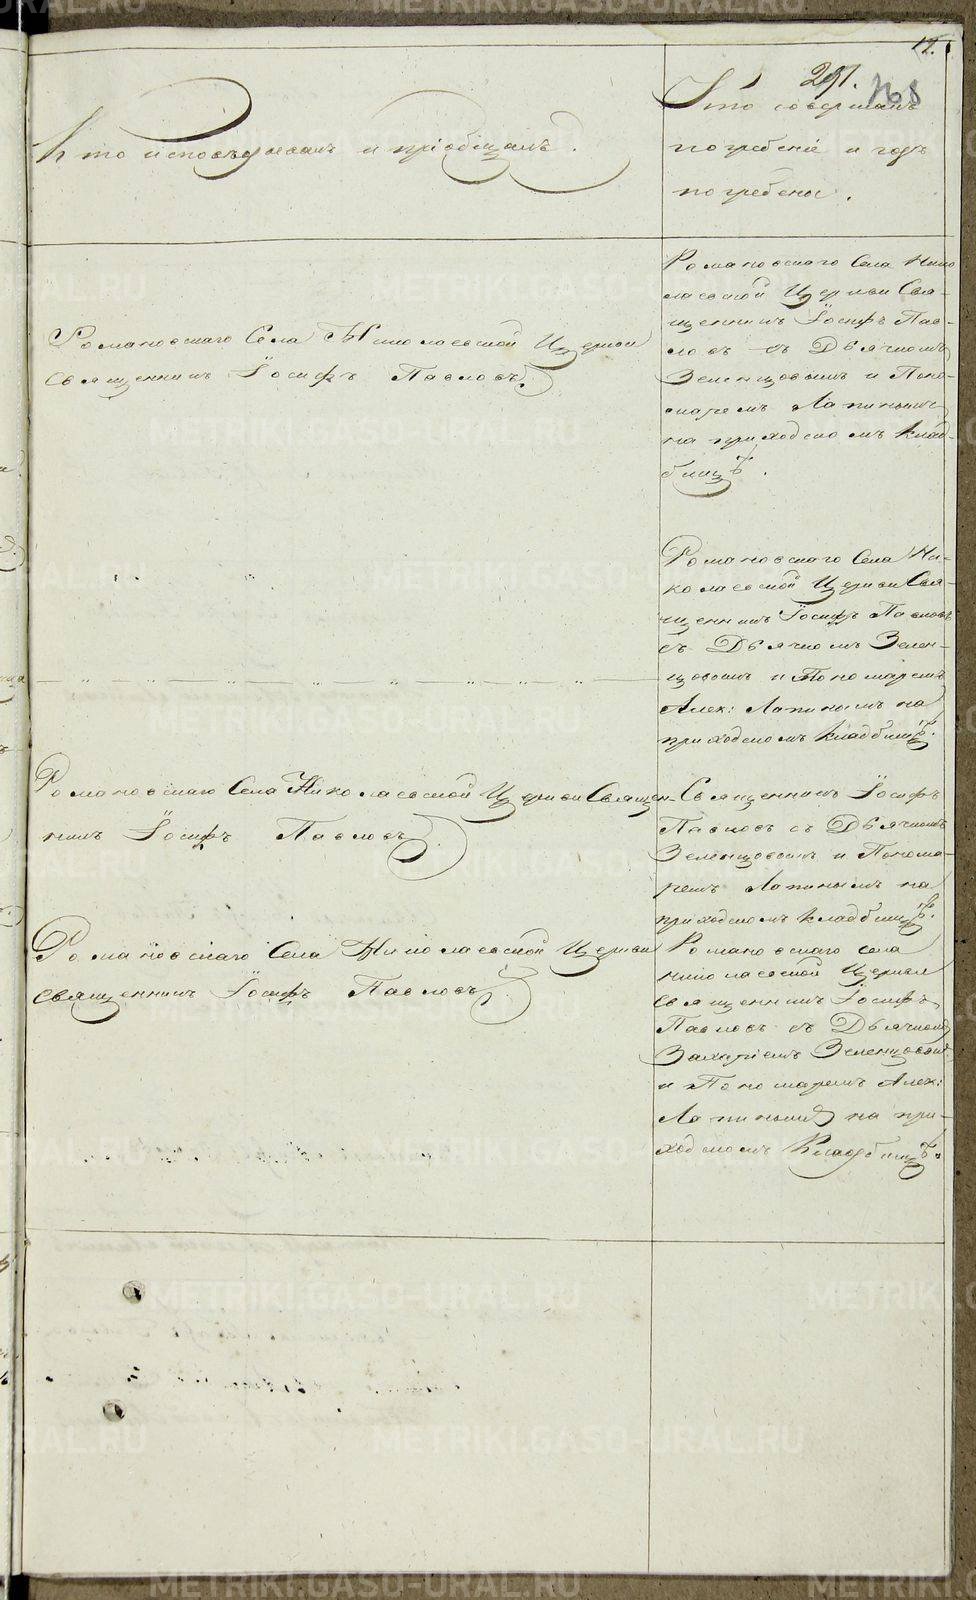 291.
Кто исповѣдывалъ и пріобщалъ.
Кто совершалъ
погребеніе и гдѣ
погребены.
Романовскаго Села Николаевской Церкви
священникъ Іосифъ Павловъ.
Романовскаго Села Нико
лаевской Церкви Свя-
щенникъ Іосифъ Пав-
ловъ съ Дьячкомъ
Зеленцовымъ и Поно-
маремъ Лапинымъ
на приходскомъ клад-
бищѣ.
Романовскаго Села Ни-
колаевской Церкви Свя-
щенникъ Іосифъ Павловъ
съ Дьячкомъ Зелен-
цовымъ и Пономаремъ
Алек: Лапинымъ на
приходскомъ кладбищѣ.
Романовскаго Села Николаевской Церкви Священ-
никъ Іосифъ Павловъ
Священникъ Іосифъ
Павловъ съ Дьячкомъ
Зеленцовымъ и Понома-
ремъ Лапинымъ на
приходскомъ кладбищѣ.
Романовскаго Села Николаевской Церкви
священникъ Іосифъ Павловъ.
Романовскаго села
николаевской Церкви
священникъ Іосифъ
Павловъ съ Дьячкомъ
Захаріемъ Зеленцовым
и Пономаремъ Алек:
Лапинымъ на при-
ходскомъ Кладбищѣ.
METRIKI.GASO-URAL.RU